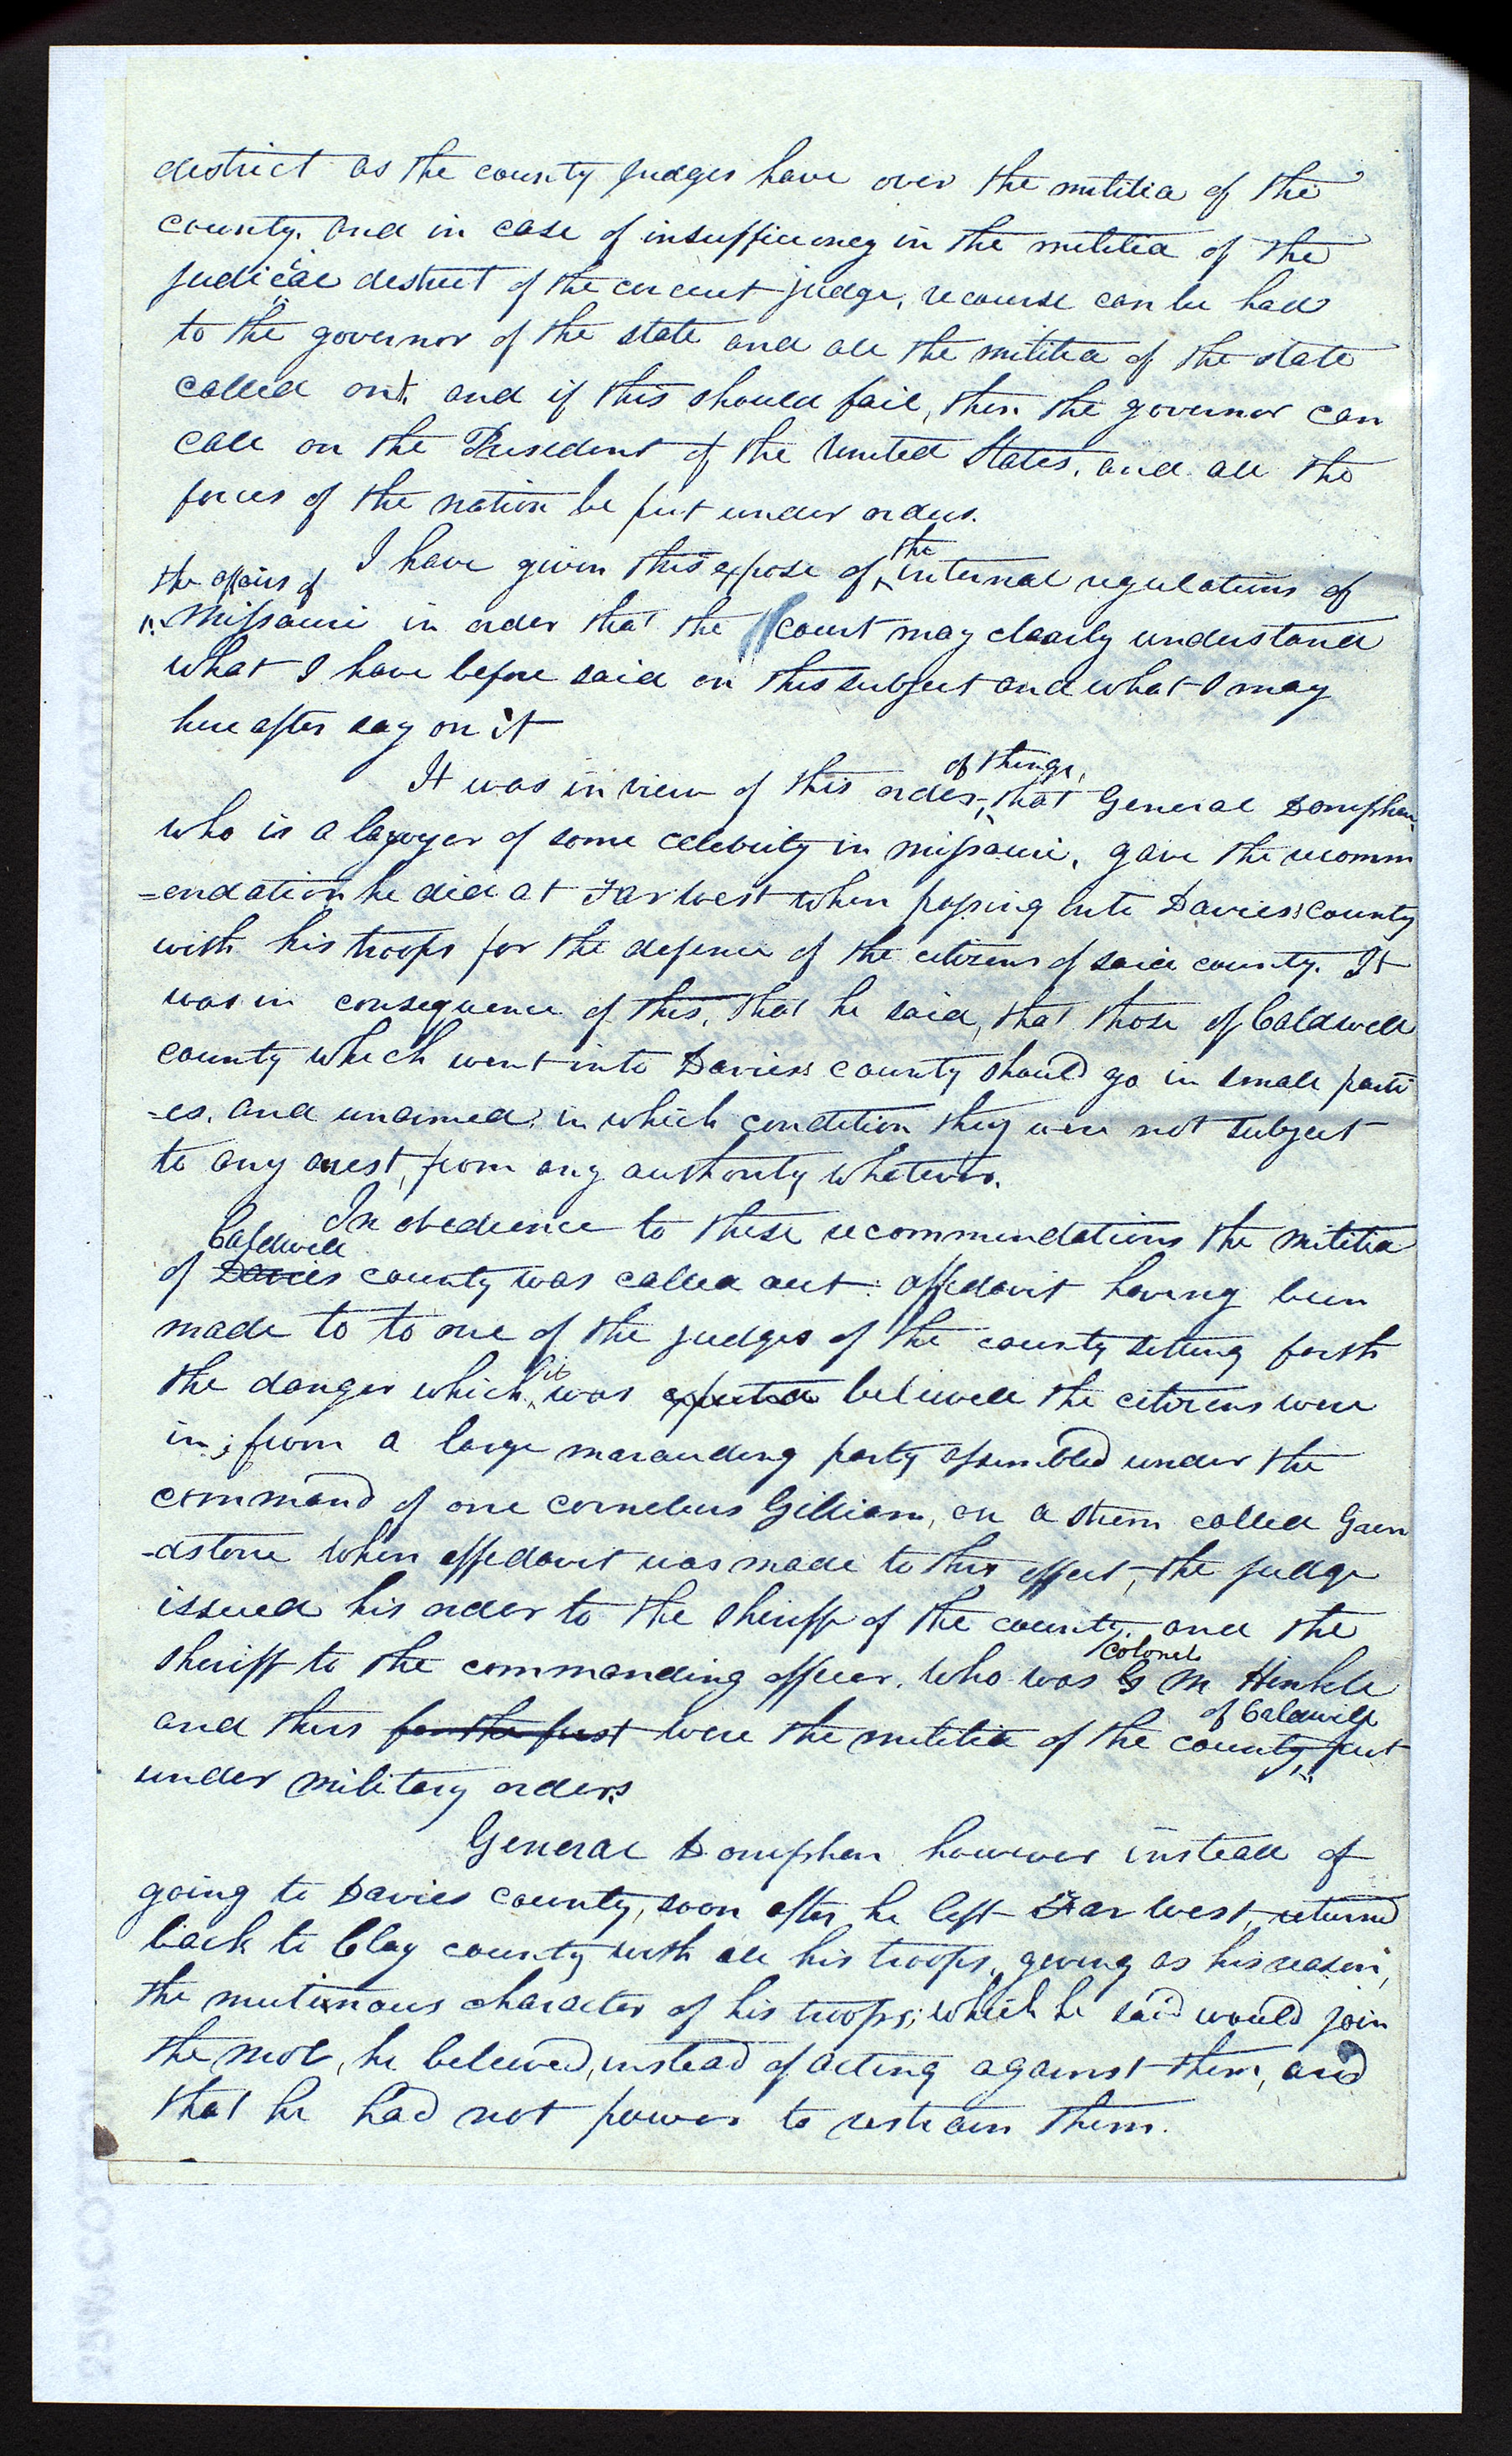 district as the county judges have over the militia of the
county. and in case of insufficiency in the militia of the
judicial district of the circuit judge, recourse can be had
to the governor of the state and all the militia of the state
called out, and if this should fail, then the governor can
call on the President of the United States, and all the
forces of the nation be put under orders.
the
I have given this expose of internal regulations of
the affairs of
Missouri in order that the court may clearly understand
what I have before said on this subject and what I may
here after say on it
of things,
It was in view of this order, that General Doniphan
who is a lawyer of some celebrity in missouri, gave the recomm
-endation he did at Far West when passing into Daviess county
with his troops for the defence of the citizens of said county. It
was in consequence of this, that he said, that those of Caldwell
county which went into Daviess county should go in small parti
-es, and unarmed, in which condition they were not subject
to any arrest, from any authority whatever.
In obedience to these recommendations the militia
Caldwell
of Davies county was called out: affidavit having been
made to to one of the judges of the county setting forth
it
the danger which was expected believed the citizens were
in; from a large marauding party assembled under the
command of one cornelius Gilliam, on a strem called Grin
-dstone when affidavit was made to this effect, the judge
issued his order to the sheriff of the county, and the
Colonel
sheriff to the commanding officer, who was G M Hinkle
of Caldwell
and thus for the first were the militia of the county, put
under military orders
General Doniphan however instead of
going to Davies county, soon after he left Far West, returned
back to Clay county with all his troops, giving as his reason,
the mutinous character of his troops; which he said would join
the mob, he believed, instead of acting against them, and
that he had not power to restrain them.